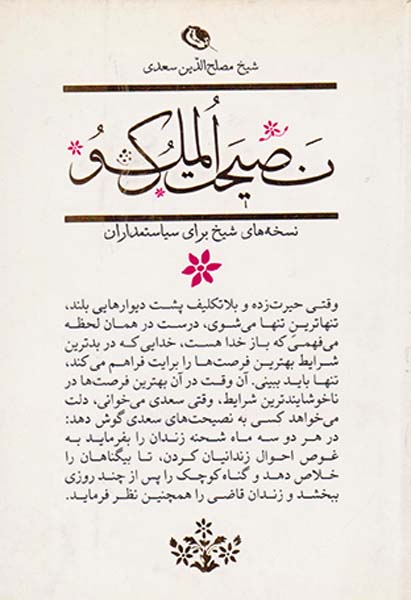 شیخ مصلح‌الدّین سعدی
نصیحة‌الملوک
نسخه‌های شیخ برای سیاستمداران
وقتی حیرت‌زده و بلاتکلیف پشت دیوارهایی بلند،
تنهاترین تنها می‌شوی، درست در همان لحظه
می‌فهمی که باز خدا هست، خدایی که در بدترین
شرایط بهترین فرصت‌ها را برایت فراهم می‌کند،
تنها باید ببینی. آن وقت در آن بهترین فرصت‌ها در
ناخوشایندترین شرایط، وقتی سعدی می‌خوانی، دلت
می‌خواهد کسی به نصیحت‌های سعدی گوش دهد:
در هر دو سه ماه شحنه زندان را بفرماید به
غوص احوال زندانیان کردن، تا بیگناهان را
خلاص دهد و گناه کوچک را پس از چند روزی
ببخشد و زندان قاضی را همچنین نظر فرماید.